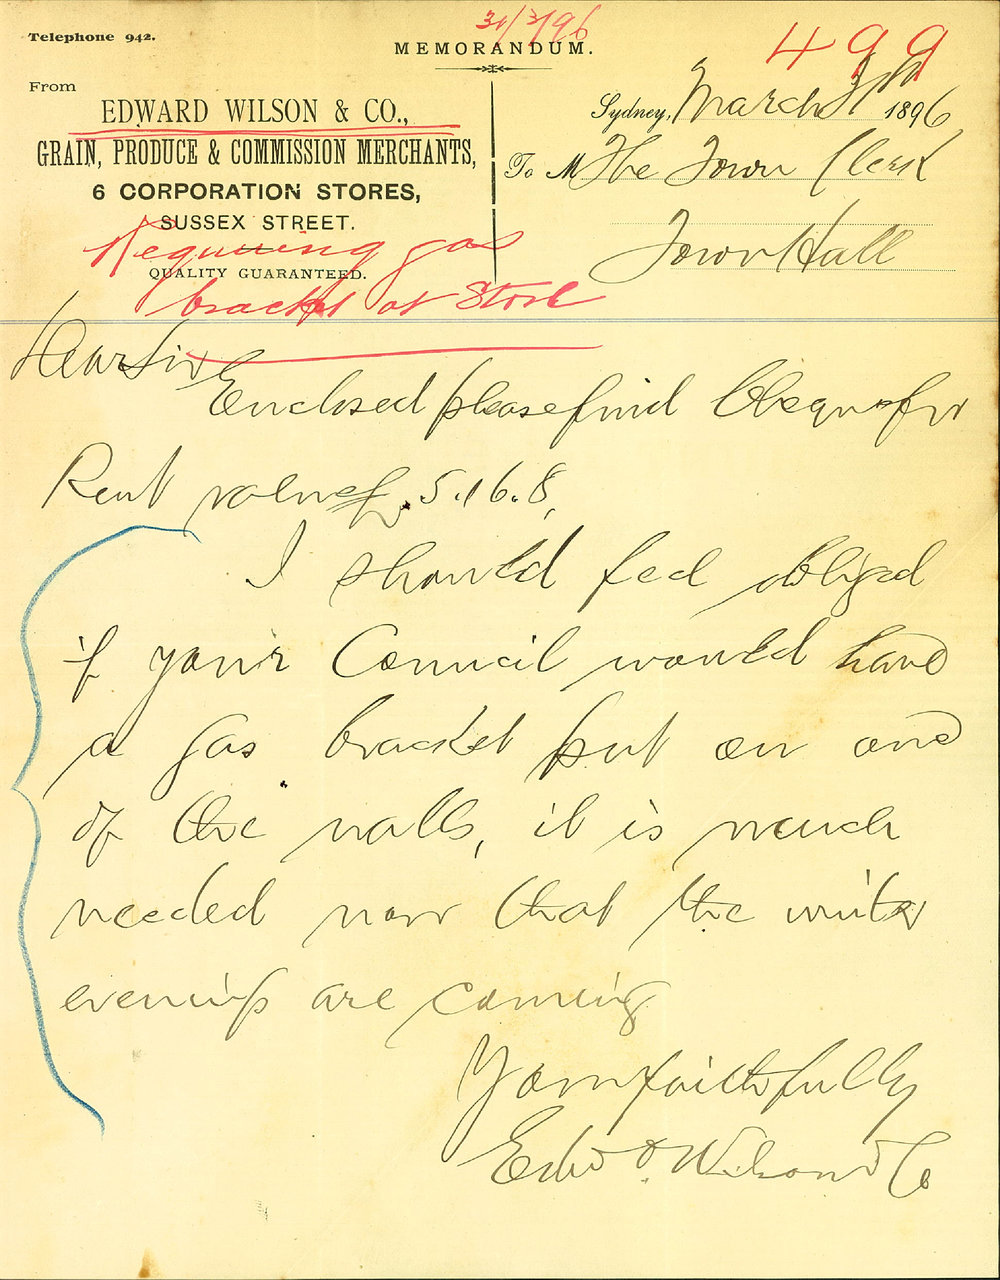 31/3/96
Telephone 942.
MEMORANDUM.
499
From
EDWARD WILSON & CO.,
Sydney, March 31st 1896
GRAIN, PRODUCE & COMMISSION MERCHANTS,
To M The Town Clerk
6 CORPORATION STORES,
SUSSEX STREET.
Town Hall
Requiring gas
QUALITY GUARANTEED.
bracket at Store
Dear Sir
Enclosed please find Cheque for
Rent value £5.16.8,
I should feel obliged
if your Council would have
a gas bracket put on one
of the walls, it is much
needed now that the winter
evenings are coming
Yours faithfully
Edwd Wilson & Co